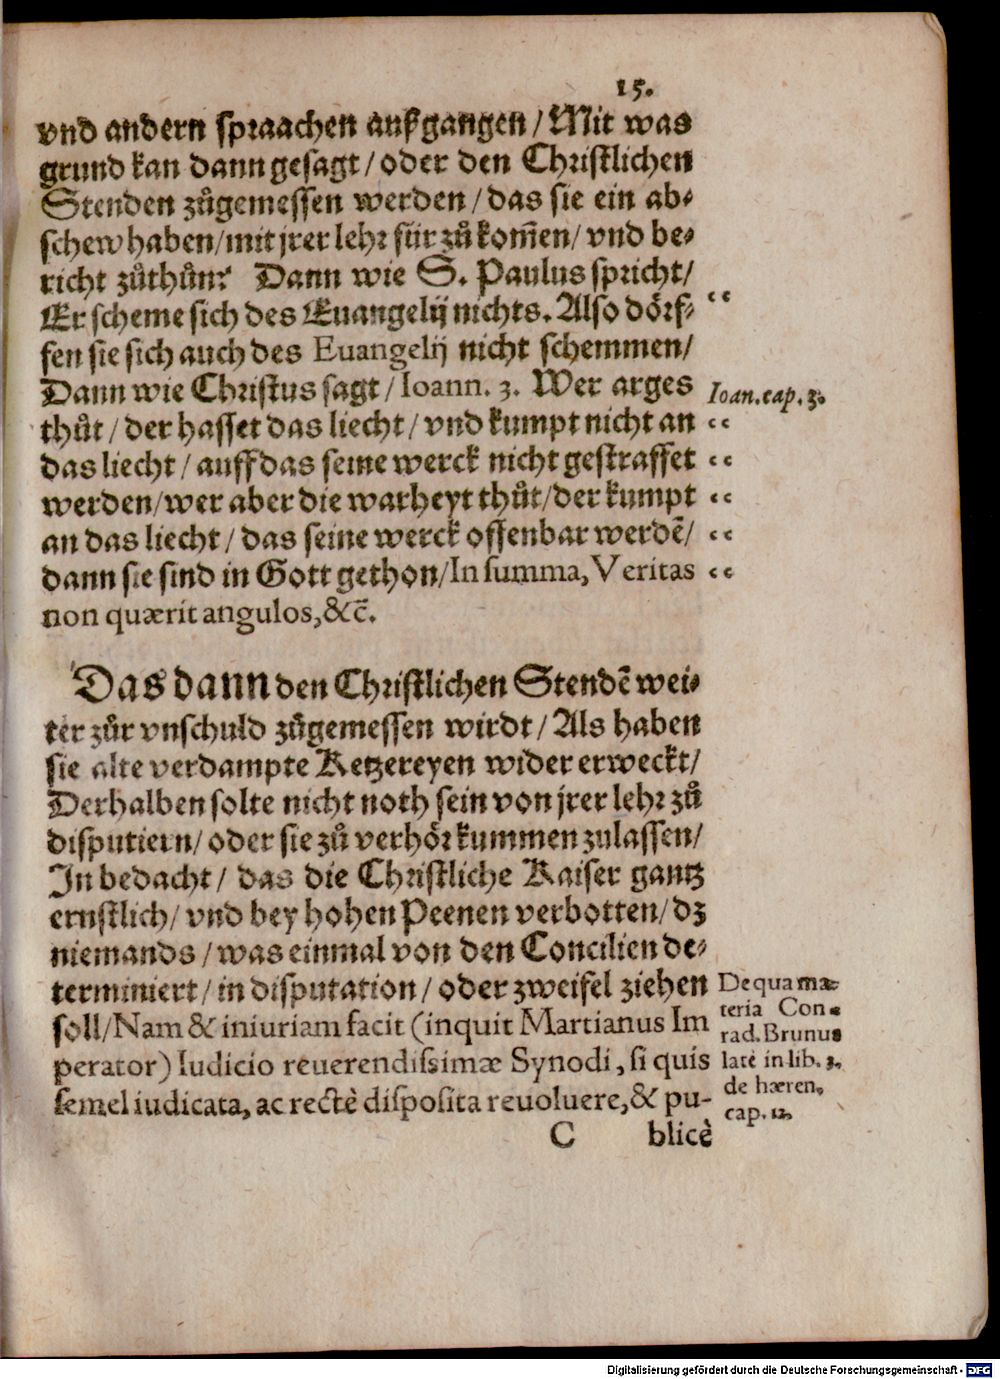 15.
vnd andern spraachen außgangen / Mit was
grund kan dann gesagt / oder den Christlichen
Stenden zůgemessen werden / das sie ein ab⸗
schew haben / mit jrer lehr für zů kom̃en / vnd be⸗
richt zůthůn? Dann wie S. Paulus spricht /
Er scheme sich des Euangelij nichts. Also dörf⸗ “
fen sie sich auch des Euangelij nicht schemmen /
Dann wie Christus sagt / Ioann. 3. Wer arges
Ioan. cap. 3.
thůt / der hasset das liecht / vnd kumpt nicht an “
das liecht / auff das seine werck nicht gestraffet “
werden / wer aber die warheyt thůt / der kumpt “
an das liecht / das seine werck offenbar werdẽ / “
dann sie sind in Gott gethon / In summa, Veritas “
non quærit angulos, &c̃.
Das dann den Christlichen Stendẽ wei⸗
ter zůr vnschuld zůgemessen wirdt / Als haben
sie alte verdampte Ketzereyen wider erweckt /
Derhalben solte nicht noth sein von jrer lehr zů
disputiern / oder sie zů verhör kummen zulassen /
In bedacht / das die Christliche Kaiser gantz
ernstlich / vnd bey hohen Peenen verbotten / dz
niemands / was einmal von den Concilien de⸗
terminiert / in disputation / oder zweifel ziehen
soll / Nam & iniuriam facit (inquit Martianus Im
perator) Iudicio reuerendissimæ Synodi, si quis
semel iudicata, ac rectè disposita reuoluere, & pu-
De qua ma⸗
teria Con⸗
rad. Brunus
latè in lib. 3.
de hæren.
cap. 12.
C blicè
Digitalisierung gefördert durch die Deutsche Forschungsgemeinschaft - DFG